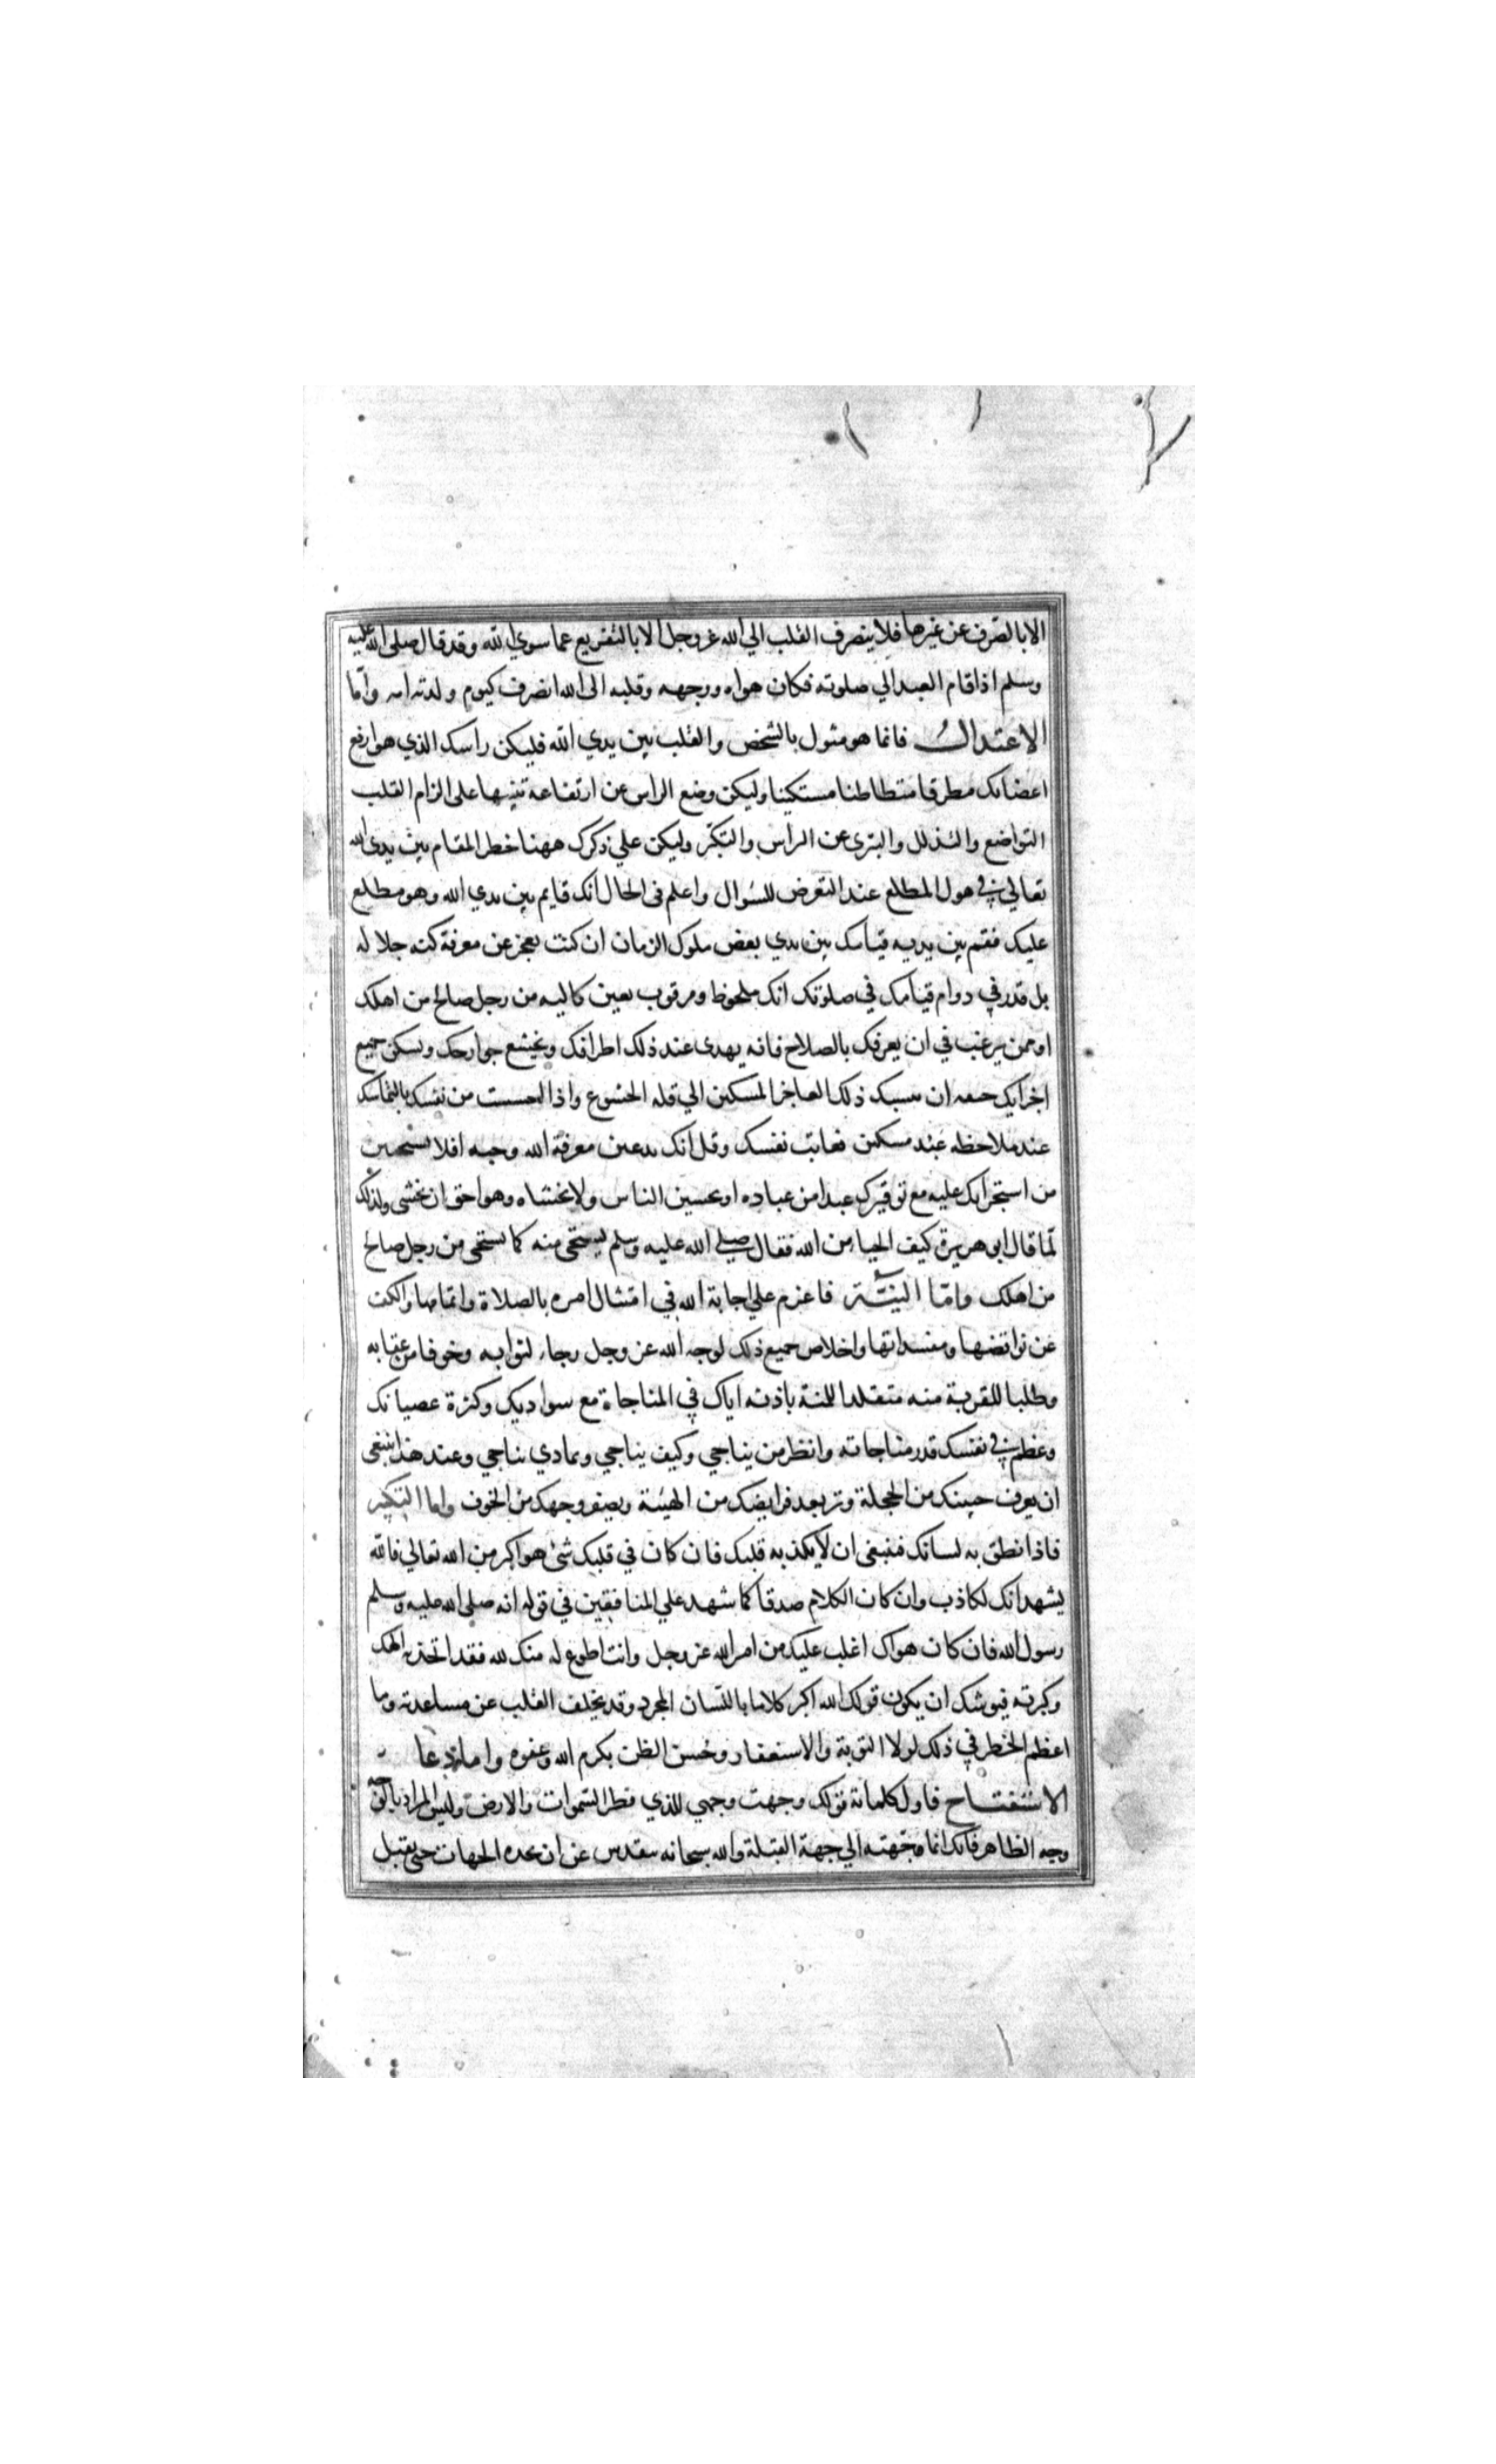 الا بالصرف عن غيرها فلا ينصرف القلب الي الله عز وجل الا بالتفريع عما سوي الله وقد قال صلى الله عليه
وسلم اذا قام العبد الي صلوته فكان هواه ووجهه وقلبه الى الله انصرف كيوم ولدته امه واما
الاعتدال فانما هو مثول بالشخص والقلب بين يدي الله فليكن راسك الذي هو ارفع
اعضائك مطرقا متطاطئا مستكينا وليكن وضع الراس عن ارتفاعه تنبيها على الزام القلب
التواضع والتذلل والتبري عن الراس والتكبر وليكن علي ذكرك ههنا خطر المقام بين يدى الله
تعالي في هول المطلع عند التعرض للسوال واعلم فى الحال انك قايم بين يدي الله وهو مطلع
عليك فقم بين يديه قيامك بين يدي بعض ملوك الزمان ان كنت تعجز عن معرفة كنه جلاله
بل قدر في دوام قيامك في صلوتك انك ملحوظ ومرقوب بعين كاليه من رجل صالح من اهلك
او ممن يرغب في ان يعرفك بالصلاح فانه يهدى عند ذلك اطرافك ويخشع جوارحك ويسكن جميع
اجزايك خيفه ان ينسبك ذلك العاجز المسكين الي قله الخشوع واذا احسست من نفسك بالتماسك
عند ملاحظه عبد مسكين فعاتب نفسك وقل انك تدعين معرفة الله وحبه افلا تستحيين
من استجرايك عليه مع توقيرك عبدا من عباده او تخشين الناس ولا تخشاه وهو احق ان يخشى ولذلك
لما قال ابو هريرة كيف الحيا من الله فقال صلي الله عليه وسلم يستحى منه كما يستحى من رجل صالح
من اهلك واما النيّة فاعزم علي اجابة الله في امتثال امره بالصلاة واتمامها والكف
عن نواقضها ومفسداتها واخلاص جميع ذلك لوجه الله عز وجل رجاء لثوابه وخوفا من عقابه
وطلبا للقربة منه متقلدا للمنة باذنه اياك في المناجاة مع سوا دبك وكثرة عصيانك
وعظم في نفسك قدر مناجاته وانظر من يناجي وكيف يناجي وبما ذي يناجي وعند هذا ينبغى
ان يعرق جبينك من الخجلة وترتعد فرايضك من الهيئة ويصفر وجهك من الخوف واما التكبير
فاذا نطق به لسانك فينبغى ان لا يكذبه قلبك فان كان في قلبك شئ هو اكبر من الله تعالي فالله
يشهد انك لكاذب وان كان الكلام صدقا كما شهد علي المنافقين في قوله انه صلى الله عليه وسلم
رسول الله فان كان هواك اغلب عليك من امر الله عز وجل وانت اطوع له منك لله فقد اتخذته الهك
وكبرته فيوشك ان يكون قولك الله اكبر كلاما باللسان المجرد وقد تخلف القلب عن مساعدته وما
اعظم الخطر في ذلك لولا التوبة والاستغفار وحسن الظن بكرم الله وعفوه واما دعا
الاستفتاح فاول كلماته قولك وجهت وجهي للذي فطر السموات والارض وليس المراد بالوجه
وجه الظاهر فانك انما وجهته الي جهة القبلة والله سبحانه متقدس عن ان تحده الجهات حتى يقبل